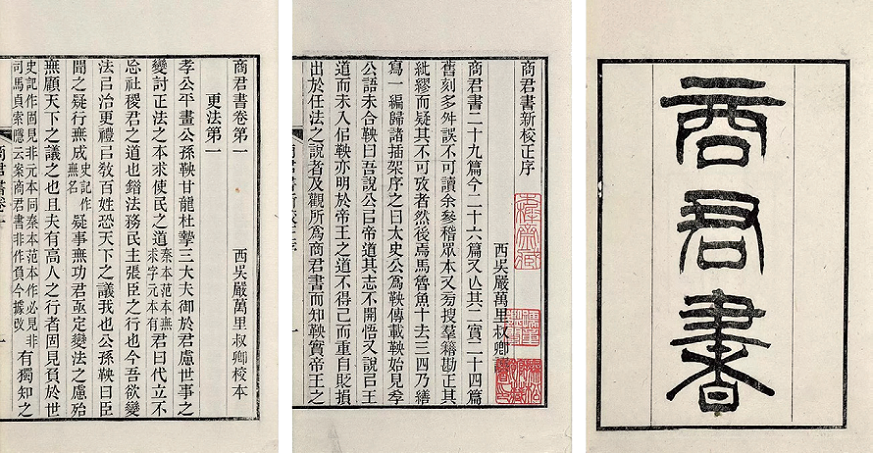 商君書
商君書新校正序
西吳嚴萬里叔卿
商君書二十九篇今二十六篇又亾其二實二十四篇
舊刻多舛誤不可讀余參稽眾本又旁搜羣籍勘正其
紕繆而疑其不可攷者然後焉馬魯魚十去三四乃繕
寫一編歸諸插架序之曰太史公為鞅傳載鞅始見孝
公語未合鞅曰吾說公㠯帝道其志不開悟又說㠯王
道而未入佀鞅亦明於帝王之道不得已而重自貶損
出於任法之說者及觀所為商君書而知鞅實帝王之
商君書卷第一 西吳嚴萬里叔卿校本
更法第一
孝公平畫公孫鞅甘龍杜摯三大夫御於君慮世事之
變討正法之本求使民之道秦本范本無求字元本有君曰代立不
忘社稷君之道也錯法務民主張臣之行也今吾欲變
法㠯治更禮㠯敎百姓恐天下之議我也公孫鞅曰臣
聞之疑行無成史記作無名疑事無功君亟定變法之慮殆
無顧天下之議之也且夫有高人之行者固見負於世
史記作固見非元本同秦本范本作必見非司馬貞索隱云案商君書非作負今據改有獨知之